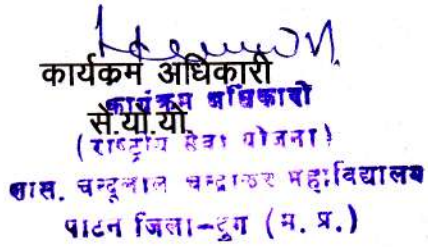 कार्यक्रम अधिकारी
कार्यक्रम अधिकारी
से.यो.यो.
(राष्ट्रीय सेवा योजना)
शास. चन्दूलाल चन्द्राकर महाविद्यालय
पाटन जिला-दुग (म. प्र.)